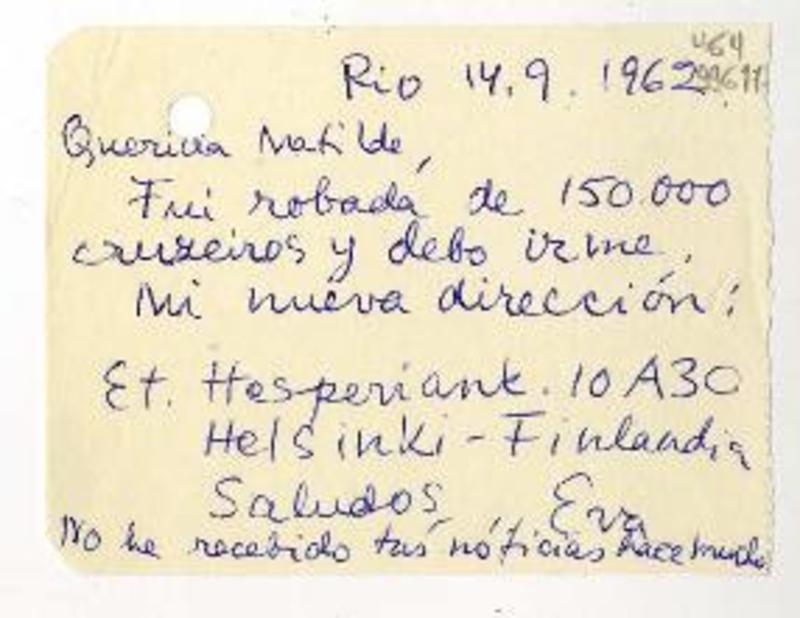 Rio 14.9.1962
Querida Matilde,
Fui robada de 150.000
cruzeiros y debo irme.
Mi nueva dirección:
Et. Hesperiank. 10 A30
Helsinki - Finlandia
Saludos, Eva
No he recebido tus nóticias hace mucho